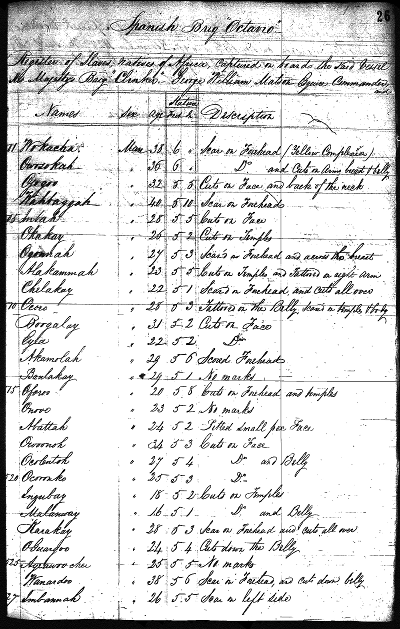 26
Spanish Brig "Octavio"
Register of Slaves, natives of Africa, captured on board the said vessel
His Majestys Brig "Clinker" George William Matson Esquire Commander
Names Sex Age Stature Feet In Description
11 Wokacha Men 38 6 " Scar on Forehead (Yellow Complexion)
36 6 " Do and Cuts on Arms breast & belly
" 32 5 5 Cuts on Face and back of the neck
" 40 5 10 Scar on Forehead
" 28 5 5 Cuts on Face
Okakay " 26 5 2 Cuts on Temples
" 27 5 3 Scars on Forehead and across the breast
Alakammah " 23 5 5 Cuts on Temples and Tattooed on right arm
Chelakay " 22 5 1 Scar on Forehead, and Cuts all over
70 Ocoro " 28 5 3 Tattooed on the Belly, temples &
Boogalay " 31 5 2 Cuts on Face
" 22 5 2 Do
Akamolah " 29 5 6 Scored Forehead
Baulakay " 29 5 1 No marks
75 Oforo " 20 5 8 Cuts on Forehead and temples
Onovo " 23 5 2 No marks
Abattah " 24 5 2 Pitted small pox Face
Owoonoh " 34 5 3 Cuts on Face
Ocolentoh " 27 5 4 Do and Belly
520 Ocoronko " 25 5 3 Do
Ingubay " 18 5 2 Cuts on Temples
Malanway " 16 5 1 Do and Belly
Karakay " 28 5 3 Scar on Forehead and cuts all over
" 24 5 4 Cut down the Belly
525 " 25 5 5 No marks
Wanardoo " 38 5 6 Scar on Forehead, and cut down belly
27 Imbannah " 26 5 5 Scar on left side